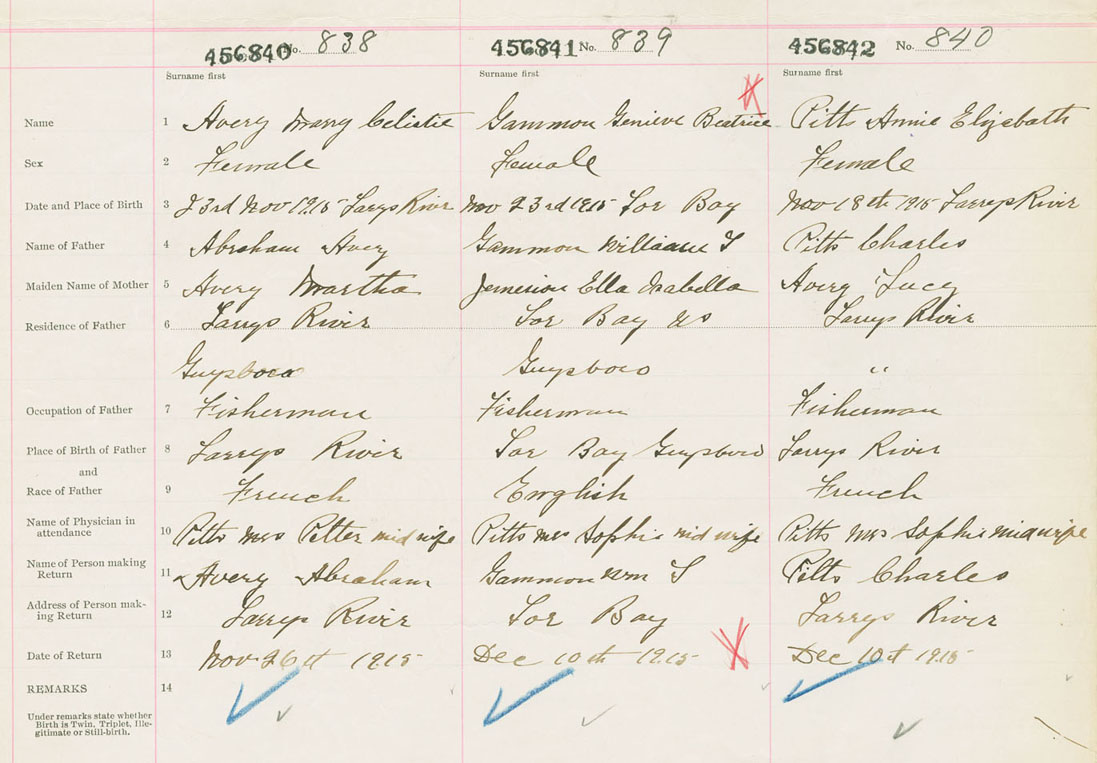 456840 No. 838 456841 No. 839 456842 No. 840
Surname first Surname first Surname first
Name 1 Avery Mary Celistie Gammon Genieve Beatrice Pitts Annie Elizabath
Sex 2 Female Female Female
Date and Place of Birth 3 23rd Nov 1915 Larrys River Nov 23rd 1915 Tor Bay Nov 18th 1915 Larrys River
Name of Father 4 Abraham Avery Gammon William T Pitts Charles
Maiden Name of Mother 5 Avery Martha Jemerion Ella Isabella Avery Lucy
Residence of Father 6 Larrys River Tor Bay Larrys River
Guysboro Guysboro "
Occupation of Father 7 Fisherman Fisherman Fisherman
Place of Birth of Father 8 Larrys River Tor Bay Guysboro Larrys River
and
Race of Father 9 French English French
Name of Physician in
attendance 10 Pitts Mrs Petter midwife Pitts Mrs Sophie midwife Pitts Mrs Sophie midwife
Name of Person making
Return 11 Avery Abraham Gammon Wm T Pitts Charles
Address of Person mak-
ing Return 12 Larrys River Tor Bay Larrys River
Date of Return 13 Nov 26th 1915 Dec 10th 1915 Dec 10th 1915
REMARKS 14
Under remarks state whether
Birth is Twin, Triplet, Ille-
gitimate or Still-birth.